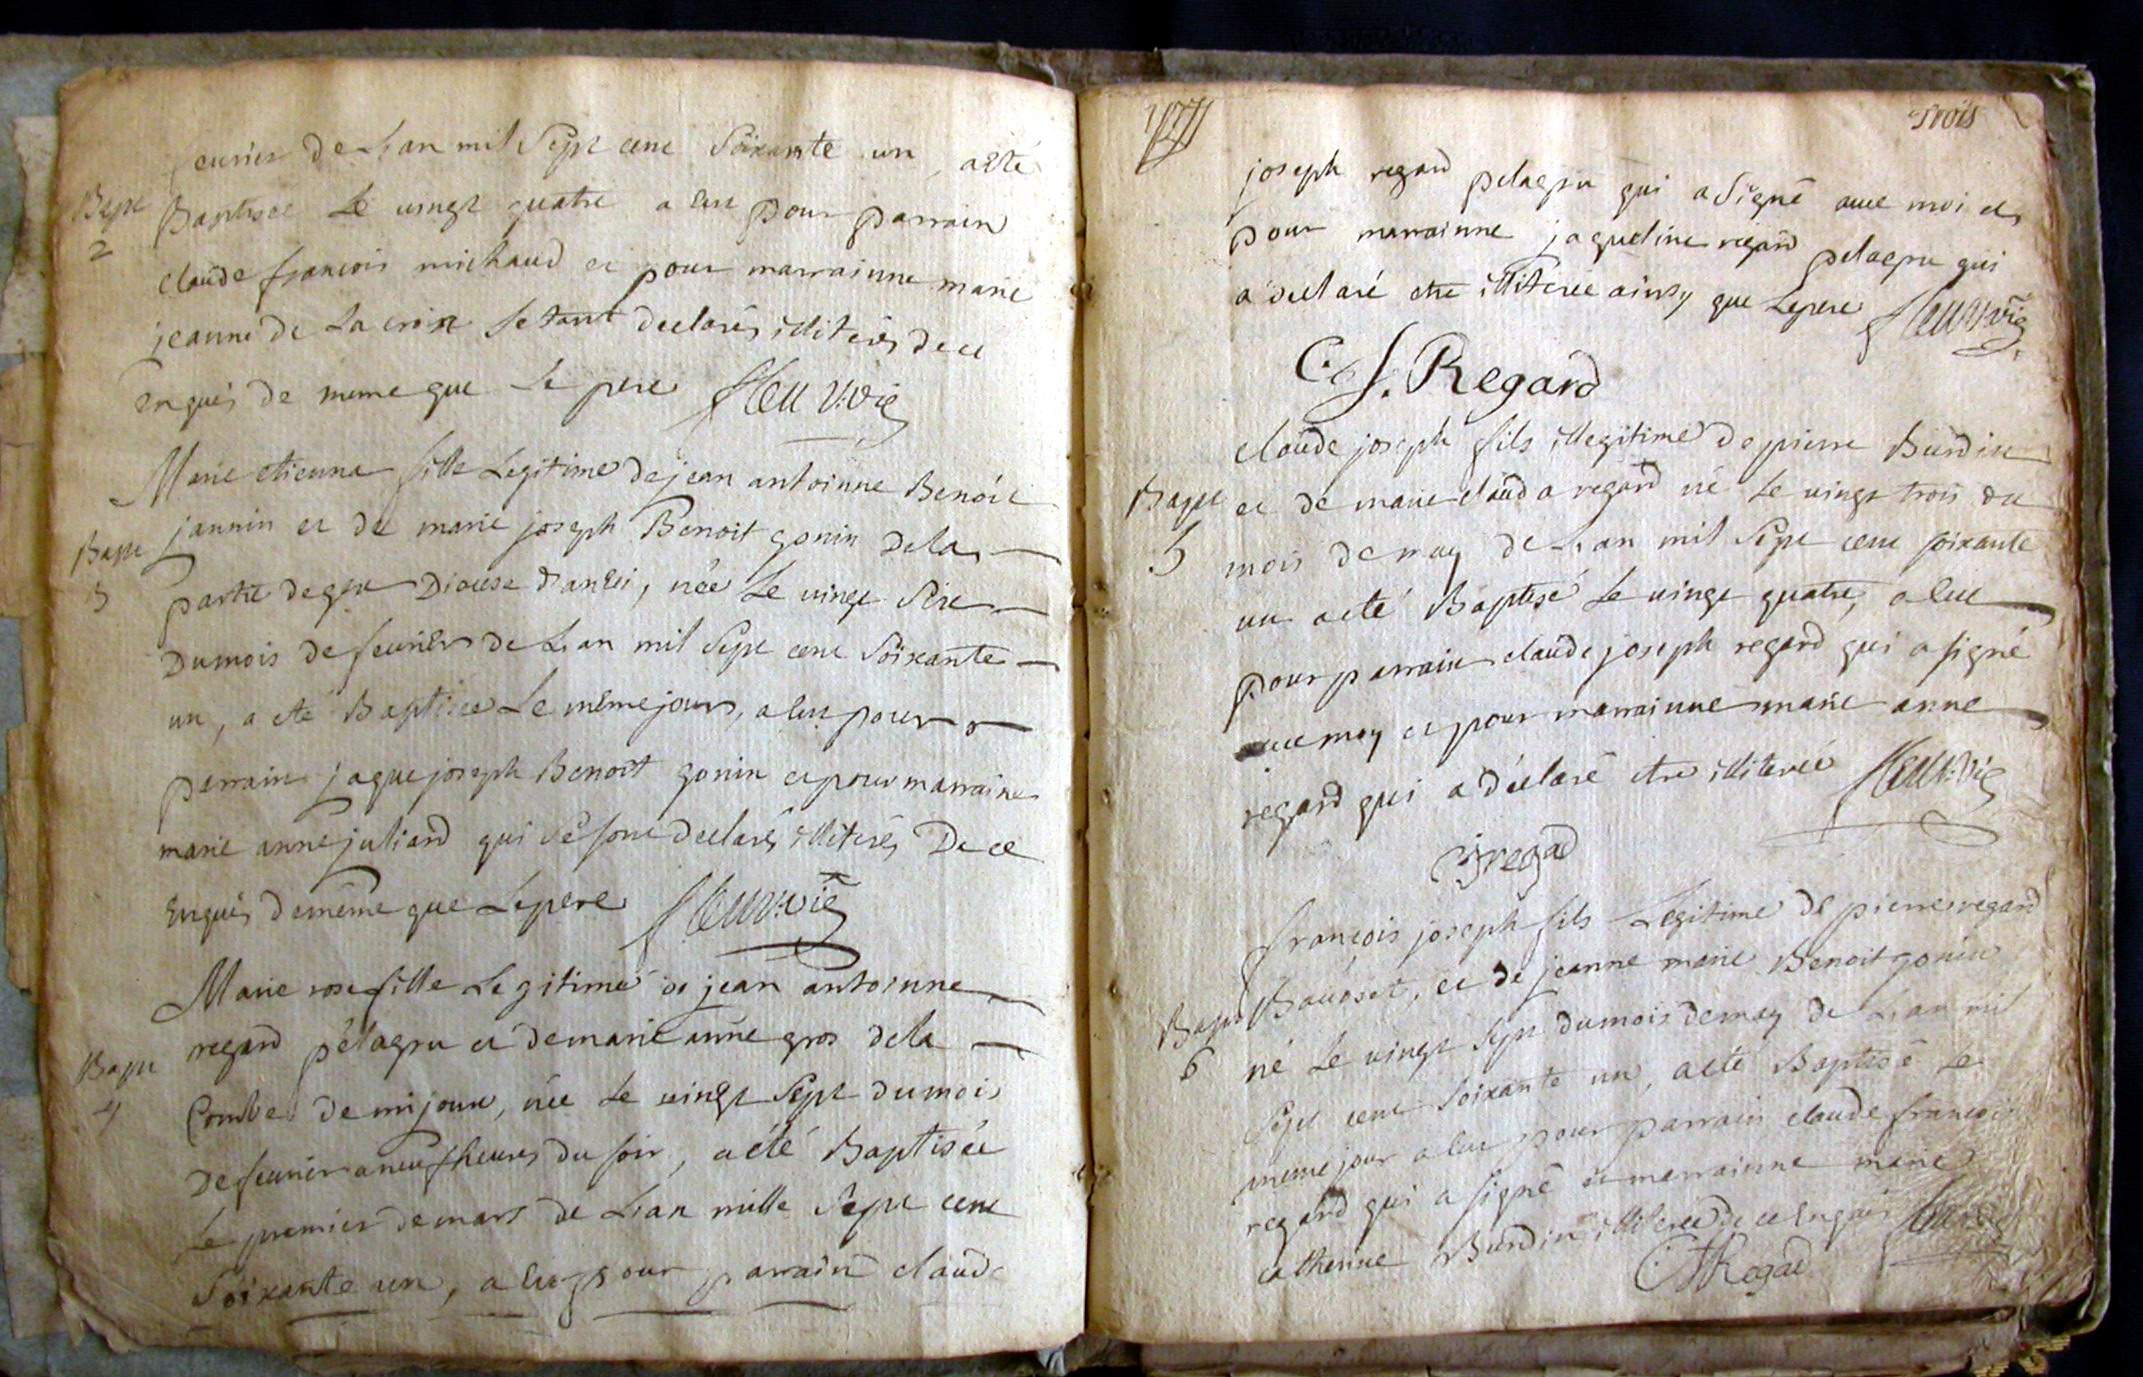 feurier de Lan mil Sept cent Soixante un, aété
Bapt Baptisée Le vingt quatre a eue pour parrain
2
claude francois michaud et pour marrainne marie
jeanne de La croix Setant declarés illiterés de ce
enquis de meme que Le pere
Marie etienna fille Legitime de jean antoinne Benoit
Bapt jannin et de marie joseph Benoit gonin dela
3 partie de gex Diocese danneci, née Le vingt Six
Dumois de feurier de Lan mil Sept cent Soixante
un, a eté Baptisée Le même jour, a eu pour
parrain jaque joseph Benoit gonin et pour marraine
marie anne juliard qui se sont declarés illiterés De ce
enquis demême que Lepere
Marie rose fille Legitime de jean antoinne
regard pélagru et demarie anne gros dela
Bapt
4 Combe de mijoux, née Le vingt Sept dumois
De feurier aneuf heures du soir, a été Baptisée
Le premier demars de Lan mille Sept cent
Soixante un, a eu pour parrain claude
trois
joseph regard pelagru qui a Signé avec moi et
pour marrainne jaqueline regard pelagru qui
a déclaré etre illiterée ainsy que Lepere
C. J. Regard
claude joseph fils illegitime de pierre Burdin
Bapt et de marie clauda regard né Le vingt trois du
5 mois de may de Lan mil Sept cent soixante
un aeté Baptisé Le vingt quatre, a eue
pour parrain claude joseph regard qui a signé
avec moy et pour marrainne marie anne
regard qui a déclaré etre illiterée
cjregad
françois joseph fils Legitime de pierre regard
Bapt et de jeanne marie Benoit gonin
6 né Le vingt Sept dumois demay de Lan mil
Sept cent Soixante un, aeté Baptisé Le
meme jour a eue pour parrain claude francois
regard qui a signé et marrainne marie
catherine Burdin illiterée de ce Enquis
Regad